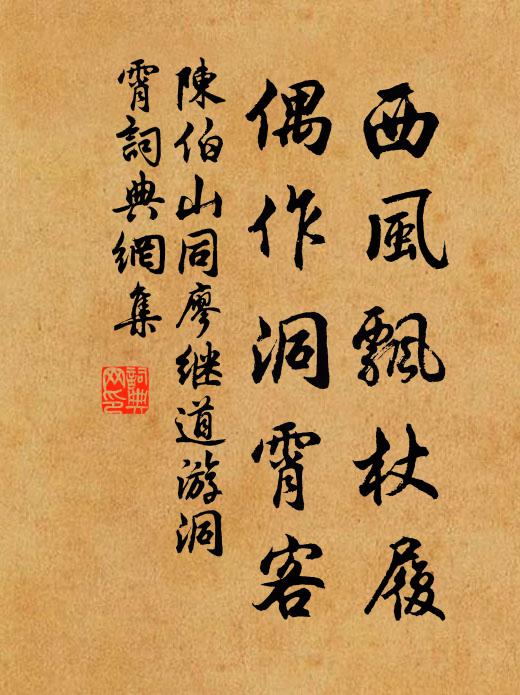 西風飄杖履
偶作洞霄客
陳伯山同廖继道游洞
霄詞典網集
詞典
网印